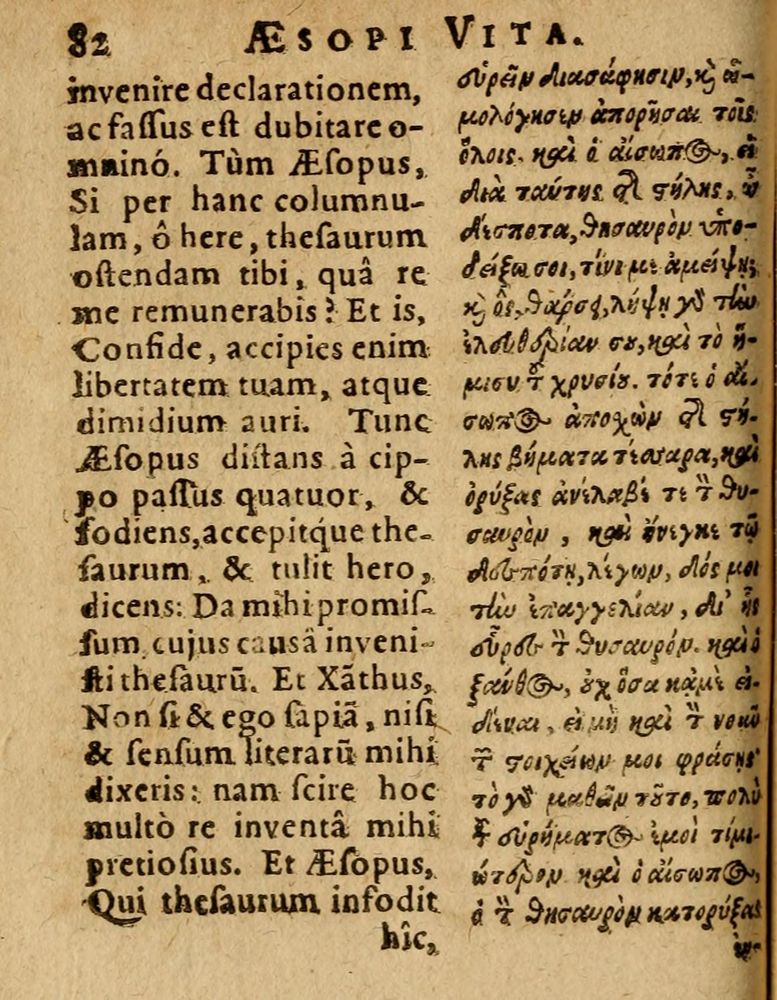 82 ÆSOPI VITA.
invenire declarationem,
ac fassus est dubitare o-
mninó. Tùm Æsopus,
Si per hanc columnu-
lam, ô here, thesaurum
ostendam tibi, quâ re
me remunerabis? Et is,
Confide, accipies enim
libertatem tuam, atque
dimidium auri. Tunc
Æsopus distans à cip-
po passus quatuor, &
fodiens, accepitq́ue the-
saurum, & tulit hero,
dicens: Da mihi promis-
sum, cujus causâ inveni-
sti thesaurū. Et Xāthus,
Non si & ego sapiā, nisi
& sensum literarū mihi
dixeris: nam scire hoc
multò re inventâ mihi
pretiosius. Et Æsopus,
Qui thesaurum infodit
hîc,
εὑρεῖν διασάφησιν, καὶ ὡ-
μολόγησεν ἀπορῆσαι τοῖς
ὅλοις. καὶ ὁ αἴσωπος, εἰ
διὰ ταύτης τῆς στήλης, ὦ
δέσποτα, θησαυρὸν ὑπο-
δείξω σοι, τίνι με ἀμείψῃ;
καὶ ὃς, θάρσει, λήψῃ γὰρ τὴν
ἐλευθερίαν σου, καὶ τὸ ἥ-
μισυ τοῦ χρυσίου. τότε ὁ αἴ-
σωπος ἀποχὼν τῆς στή-
λης βήματα τέσσαρα, καὶ
ὀρύξας ἀνέλαβέ τε τὸν θη-
σαυρὸν, καὶ ἤνεγκε τῷ
δεσπότῃ, λέγων, δός μοι
τὴν ἐπαγγελίαν, δι' ἧς
εὗρες τὸν θησαυρόν. καὶ ὁ
ξάνθος, οὐχ ὅσα κἀμὲ εἰ-
δέναι, εἰ μὴ καὶ τὸν νοῦν
τῶν στοιχείων μοι φράσῃς
τὸ γὰρ μαθεῖν τοῦτο, πολὺ
τοῦ εὑρήματος ἐμοὶ τιμι-
ώτερον καὶ ὁ αἴσωπος,
ὁ τὸν θησαυρὸν κατορύξας